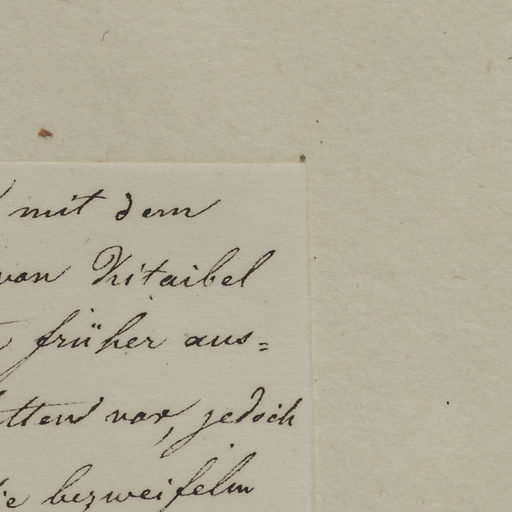 mit dem
von Kitaibel
früher aus=
var, jedoch
bezweifeln